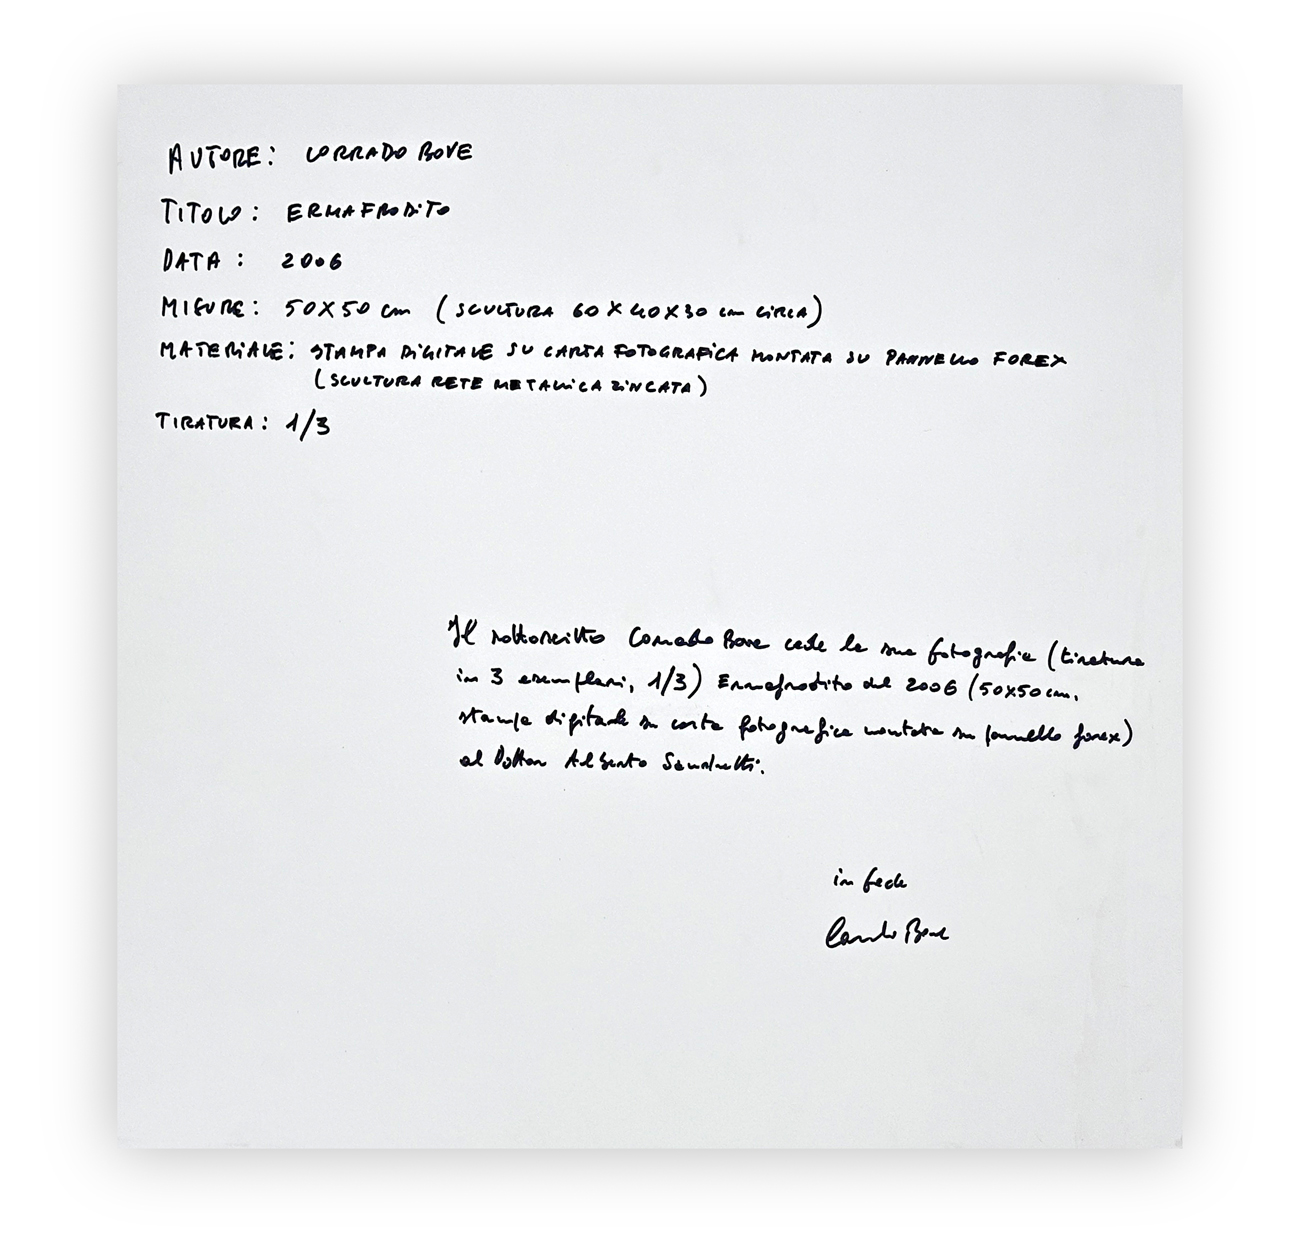 AUTORE: CORRADO BOVE
TITOLO: ERMAFRODITO
DATA: 2006
MISURE: 50X50 cm (SCULTURA 60X40X30 cm CIRCA)
MATERIALE: STAMPA DIGITALE SU CARTA FOTOGRAFICA MONTATA SU PANNELLO FOREX
(SCULTURA RETE METALLICA ZINCATA)
TIRATURA: 1/3
Il sottoscritto Corrado Bove cede la sua fotografia (tiratura
in 3 esemplari, 1/3) Ermafrodito del 2006 (50x50 cm,
stampa digitale su carta fotografica montata su pannello forex)
al Dottor Alberto
in fede
Corrado Bove